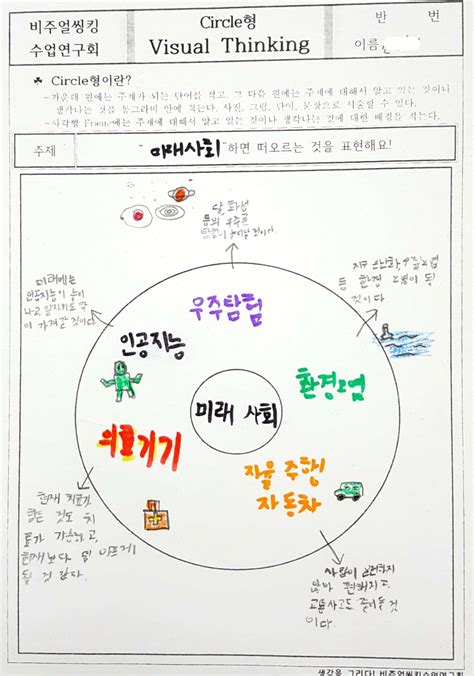 비주얼씽킹
수업연구회
Circle형
Visual Thinking
반 번
이름
♣ Circle형이란?
-가운데 원에는 주제가 되는 단어를 적고, 그 다음 원에는 주제에 대해서 알고 있는 것이나
생각나는 것을 동그라미 안에 적는다. 사진, 그림, 단어, 문장으로 서술할 수 있다.
-사각형 Frame에는 주제에 대해서 알고 있는 것이나 생각나는 것에 대한 배경을 적는다.
주제
"미래사회"하면 떠오르는 것을 표현해요!
달 화성
등의 우주
탐험이
것이다
미래에는
인공지능이 늘어
나고 일자리도 많
이 가져갈 것이다
지구 온난화,
등 환경 오염이 될
것이다
우주탐험
인공지능
환경오염
미래 사회
의료기기
자율 주행
자동차
현재 치료가
힘든 것도 치
료가 가능하고,
현재보다 덜 아프게
될 것 같다.
사람이 운전하지
않아 편해지고
교통사고도 줄어들 것
이다.
생각을 그리다! 비주얼씽킹수업연구회